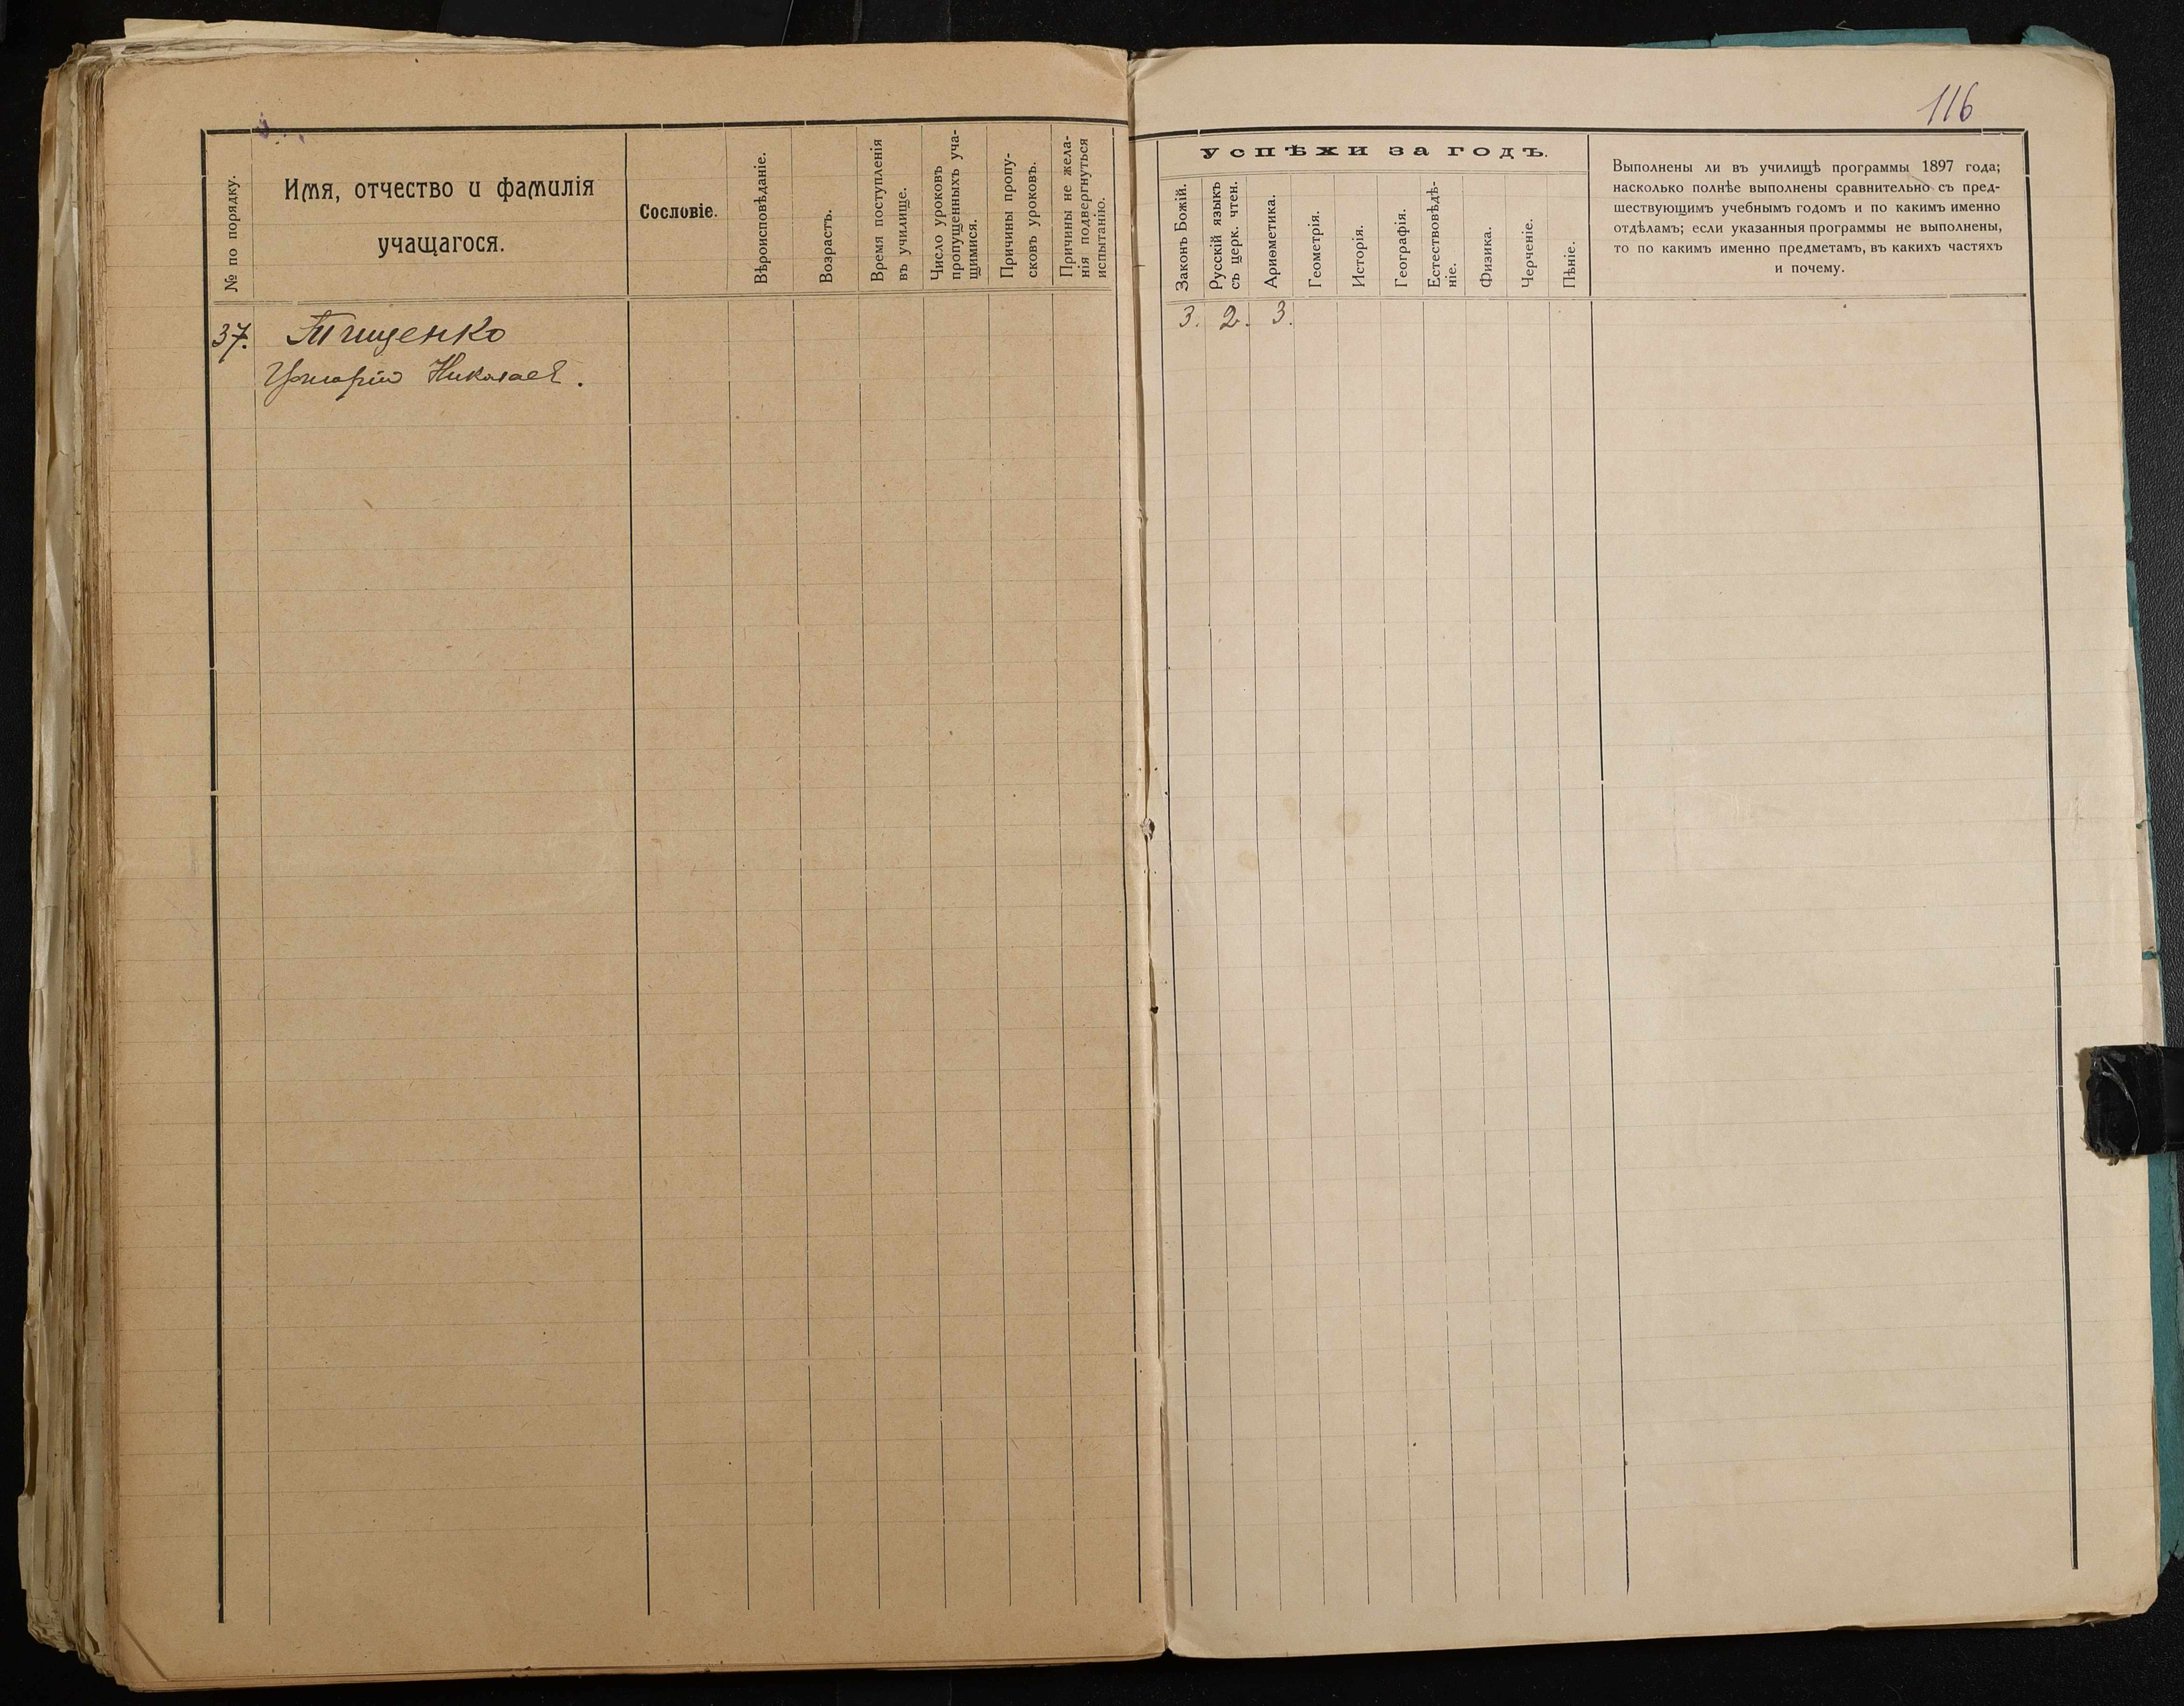 116
№ по порядку.
Имя, отчество и фамилія
учащагося.
Сословіе.
Вѣроисповѣданіе.
Возрастъ.
Время поступленія
въ училище.
Число уроковъ
пропущенныхъ уча-
щимися.
Причины пропу-
сковъ уроковъ.
Причины не жела-
нія подвергнуться
испытанію.
Успѣхи за годъ.
Законъ Божій.
Русскій языкъ
съ церк. чтен.
Ариѳметика.
Геометрія.
Исторія.
Географія.
Естествовѣдѣ-
ніе.
Физика.
Черченіе.
Пѣніе.
Выполнены ли въ училищѣ программы 1897 года;
насколько полнѣе выполнены сравнительно съ пред-
шествующимъ учебнымъ годомъ и по какимъ именно
отдѣламъ; если указанныя программы не выполнены,
то по какимъ именно предметамъ, въ какихъ частяхъ
и почему.
37. Тищенко 3. 2. 3.
Григорій Николаев.